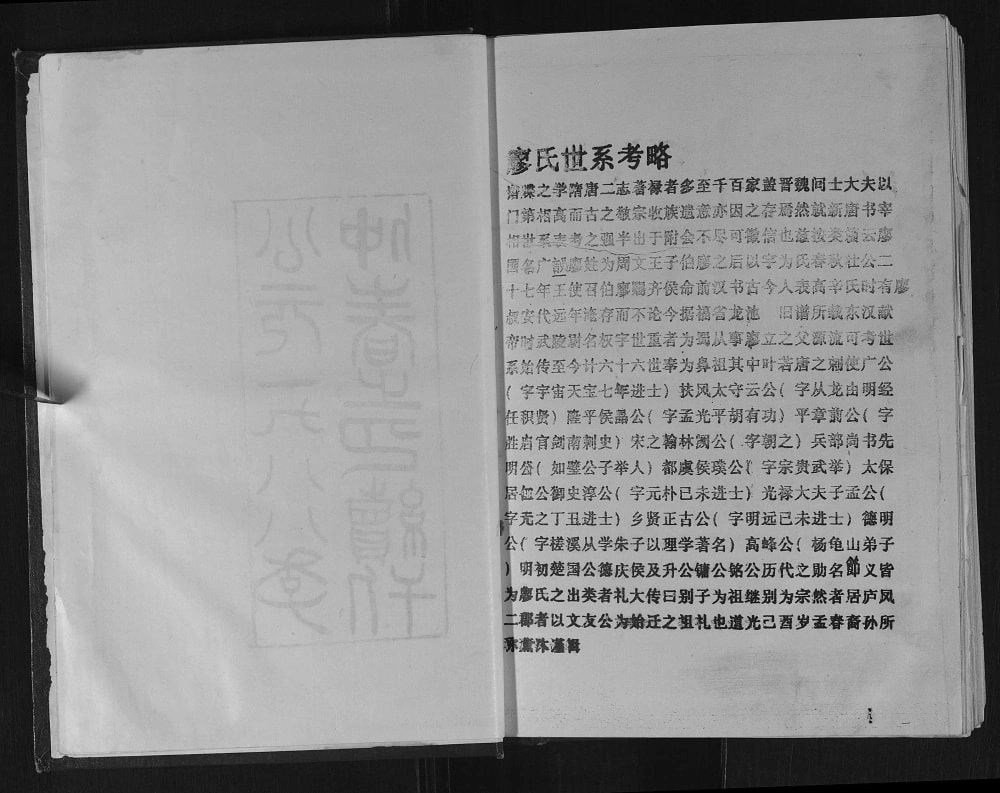 廖氏世系考略
谱牒之学隋唐二志著禄者多至千百家盖晋魏间士大夫以
门第相高而古之敬宗收族遗意亦因之存焉然就新唐书宰
相世系表考之强半出于附会不尽可徵信也兹按类编云廖
国名广韵廖姓为周文王子伯廖之后以字为氏春秋壮公二
十七年王使召伯廖赐齐侯命前汉书古今人表高辛氏时有廖
叔安代远年淹存而不论今据福省龙池 旧谱所载东汉献
帝时武陵尉名权字世重者为蜀从事廖立之父源流可考世
系始传至今计六十六世奉为鼻祖其中叶若唐之刺使广公
(字宇宙天宝七年进士)扶风太守云公(字从龙由明经
任积贤)隆平侯晶公(字孟光平胡有功)平章前公(字
胜启官剑南刺史)宋之翰林阁公(字朝之)兵部尚书先
明公(如璧公子举人)都虞侯璞公(字宗贵武举)太保
居 公御史淳公(字元朴已未进士)光禄大夫子孟公(
字元之丁丑进士)乡贤正古公(字明远已未进士)德明
公(字槎溪从学朱子以理学著名)高峰公(杨龟山弟子
)明初楚国公德庆侯及升公镛公铭公历代之勋名節义皆
为廖氏之出类者礼大传曰别子为祖继别为宗然者居庐凤
二郡者以文友公为始迁之祖礼也道光己酉岁孟春裔孙所